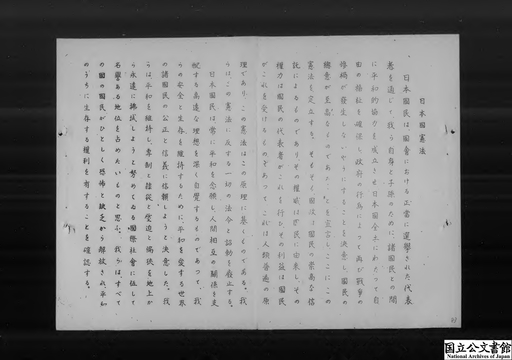 日本國憲法
日本國民は、國會における正當に選擧された代表
者を通じて、我ら自身と子孫のために、諸國民との間
に平和的協力を成立させ、日本國全土にわたつて自
由の福祉を確保し、政府の行爲によつて再び戰爭の
慘禍が發生しないやうにすることを決意し、國民の
總意が至高なものであることを宣言し、ここにこの
憲法を定立する。そもそも國政は國民の崇高な信
託によるものであり、その權威は國民に由來し、その
權力は國民の代表者がこれを行ひ、その利益は國民
がこれを受けるものであつて、これは人類普遍の原
理であり、この憲法はこの原理に基くものである。我
らは、この憲法に反する一切の法令と詔勅を廢止する。
日本國民は、常に平和を念願し、人間相互の關係を支
配する高遠な理想を深く自覺するものであつて、我
らの安全と生存を維持するために、平和を愛する世界
の諸國民の公正と信義に信頼しようと決意した。我
らは、平和を維持し、專制と隷從と壓迫と偏狹を地上か
ら永遠に拂拭しようと努めてゐる國際社會に伍して
名譽ある地位を占めたいものと思ふ。我らは、すべて
の國の國民が、ひとしく恐怖と缺乏から解放され、平和
のうちに生存する權利を有することを確認する。
国立公文書館
National Archives of Japan